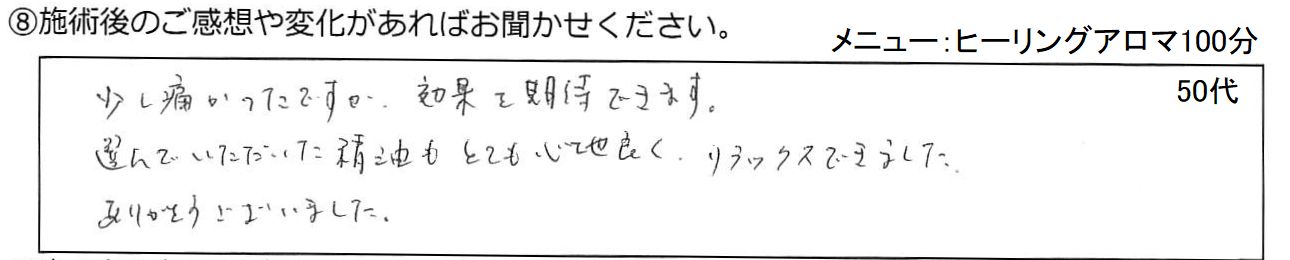 ⑧施術後のご感想や変化があればお聞かせください。
メニュー：ヒーリングアロマ100分
50代
少し痛かったですが、効果を期待できます。
選んでいただいた精油もとても心地良く、リラックスできました。
ありがとうございました。